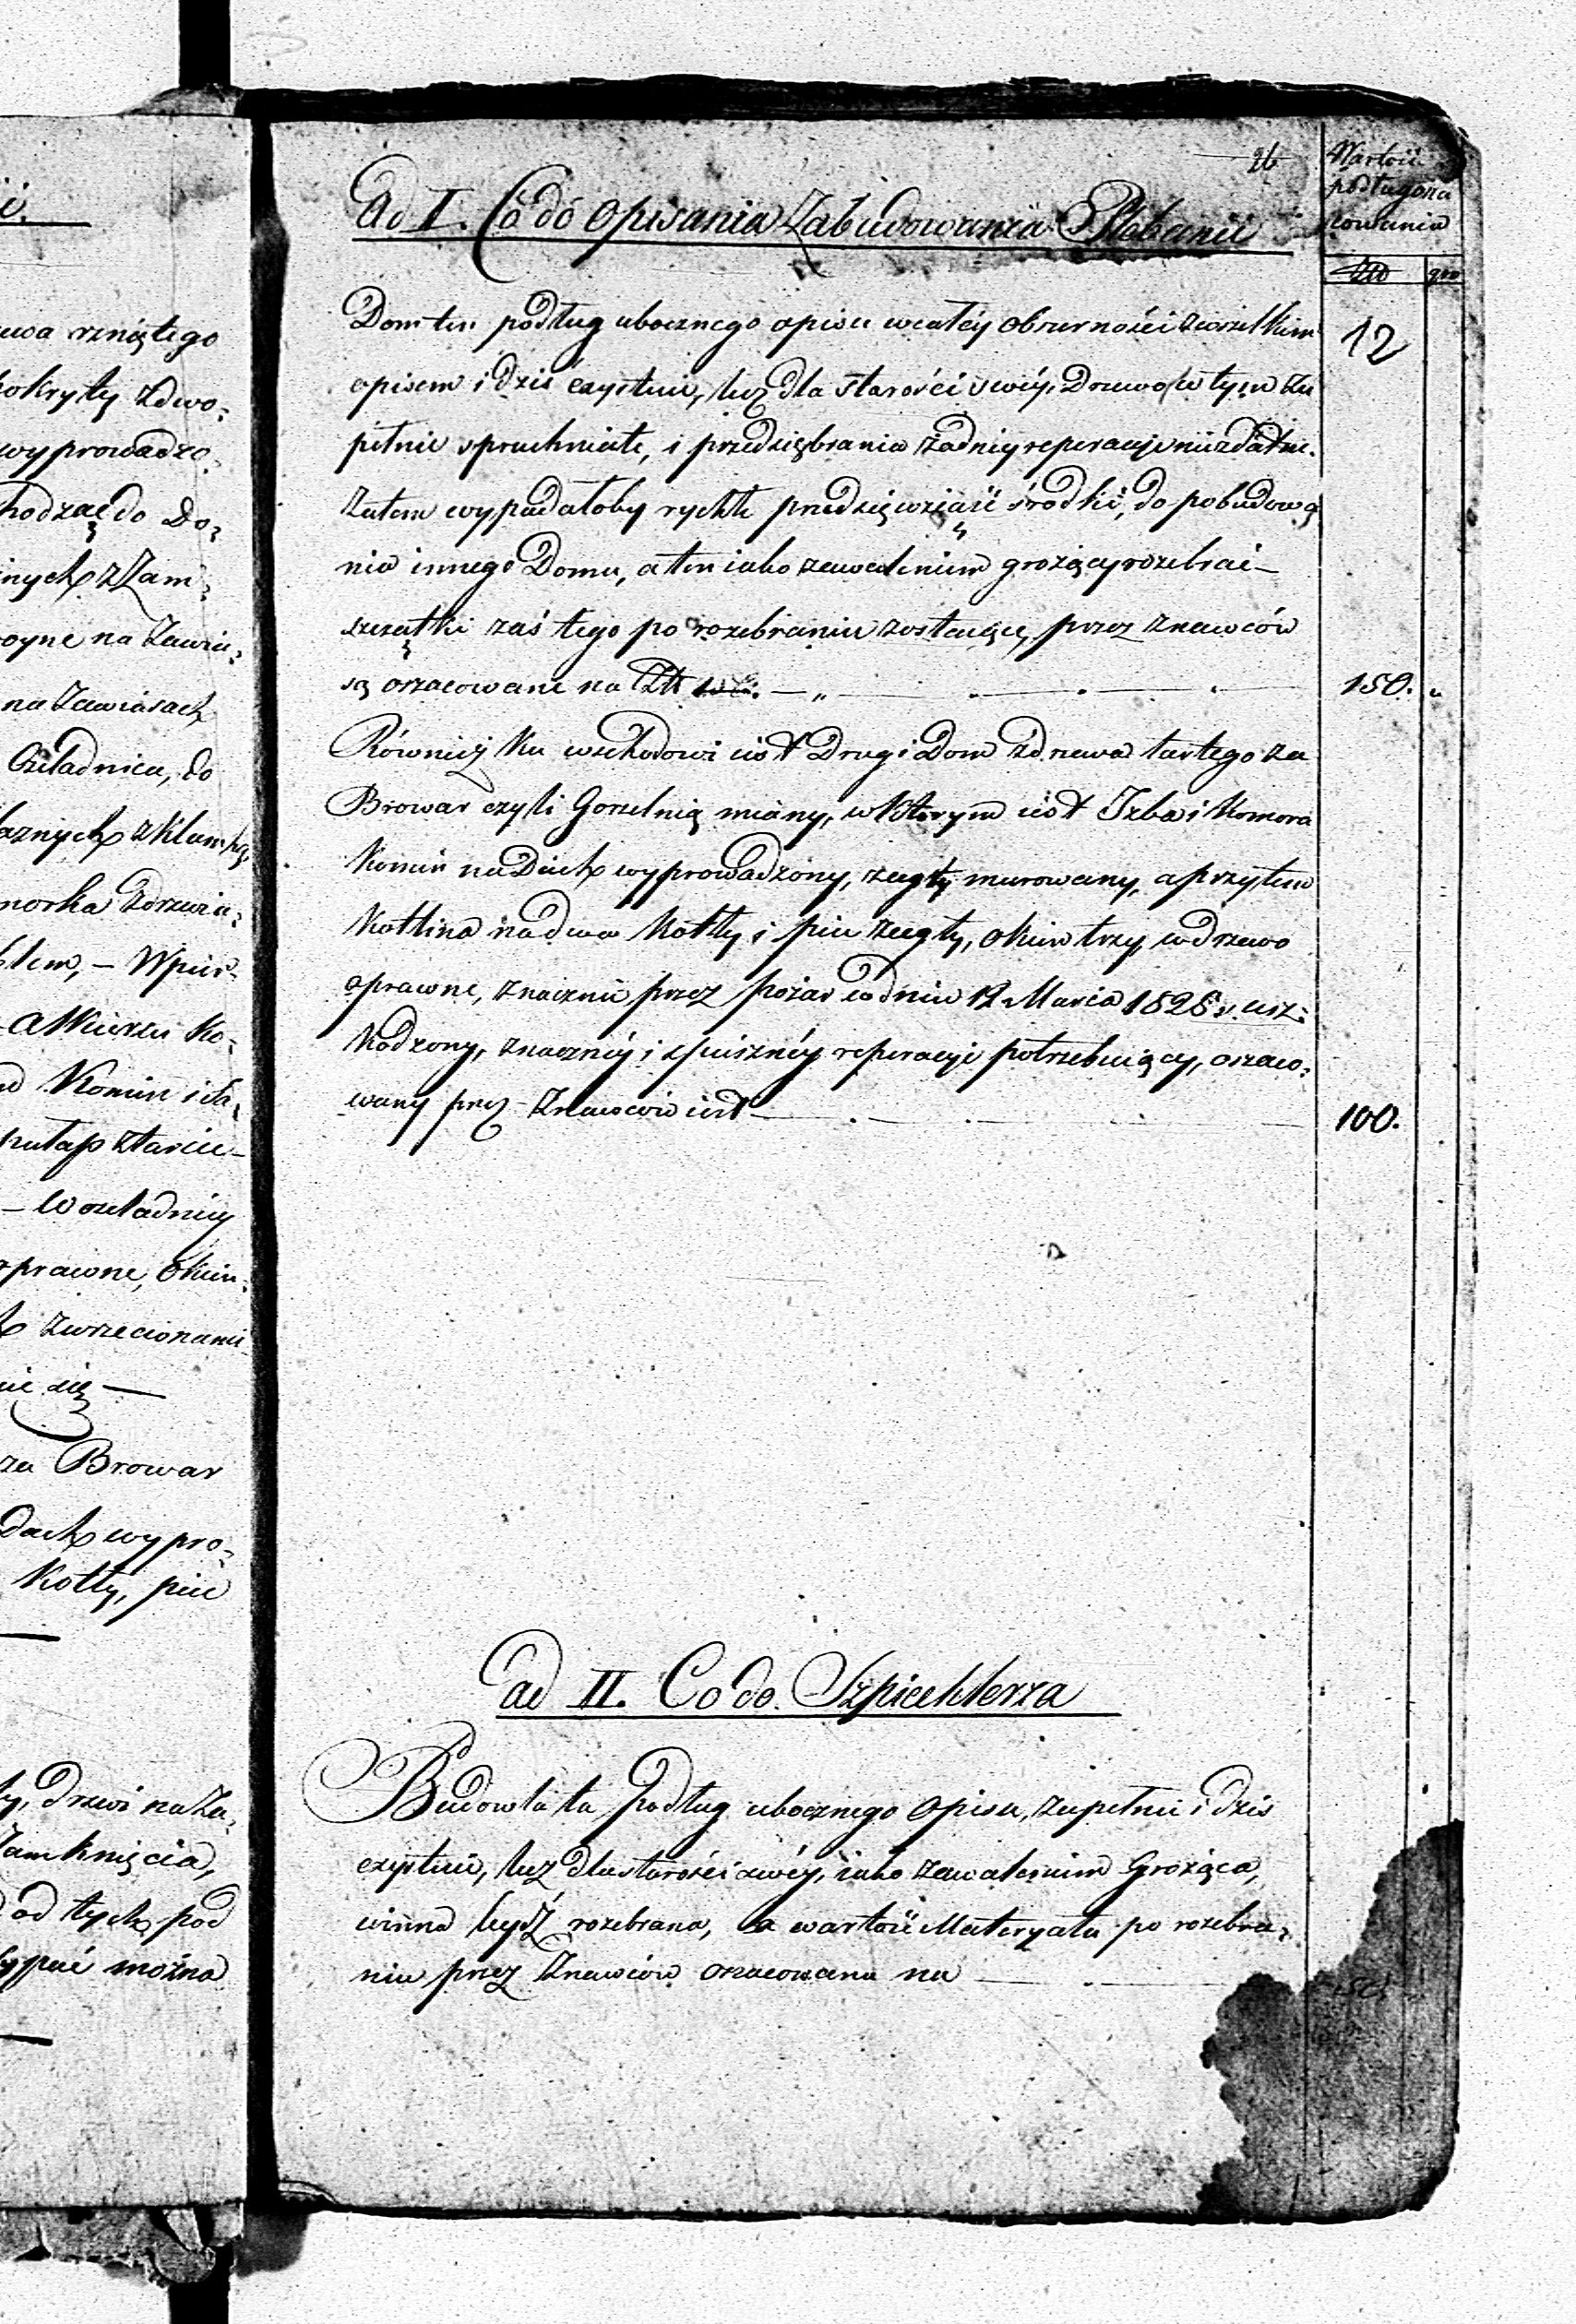 ii.
ewa rzniętego
pokryty zdwo-
wyprowadzo-
chodząc do Do-
nych z Zam-
oyne na Zawia-
na Zawiasach
Czeladnicy, do
laznych z klamką,
morka zdrzewia-
blem, — W piér-
Alkierzu Ko-
Komin i da-
pułap ztarcic
— W czeladniéy
oprawne, Okien-
zwrzecionami
nie się —
za Browar
dach wypro-
Kotły, piec
ty, drzwi na Za-
Zamknięcia,
od tych pod
sypać można
26
Wartość
podług osza
cowania
Złt gro
Ad I. Co do opisania Zabudowania Plebanii
Dom ten podług ubocznego opisu wcałéy obszerności zwszelkim
opisem i dziś exystuie, lecz dla starości swéy, Drzewo w tym zu
pełnie spruchniałe, i przedsiębrania żadnéy reperacyi niezdatne.
Zatem wypadałoby rychłe przedsięwziąść środki, do pobudowa
nia innego Domu, a ten iako zawaleniem grożący rozebrać —
szczątki zaś tego po rozebraniu zostaiące, przez znawców
są oszacowane na Złt 150. — „ —
12
150. „
Równiéj ku wschodowi iest Drugi Dom zdrzewa tartego za
Browar czyli Gorzelnią miany, w którym iest Izba i Komora
Komin na Dach wyprowadzony, zcegły murowany, a przytem
Kotlina na dwa Kotły i piec zcegły, okien trzy, w drzewo
oprawne, znacznie przez pożar w dniu 12 Marca 1826 r. usz-
kodzony, znacznéy i spieszney reperacyi potrzebuiący, oszaco-
wany przez Znawców iest —
100.
ad II. Co do Szpichlerza
Budowla ta podług ubocznego opisu, zupełnie i dziś
exystuie, lecz dla starości swéy, iako zawaleniem Grożąca,
winna bydź rozebrana, a wartość Materyału po rozebra-
niu przez Znawców oszacowana na —